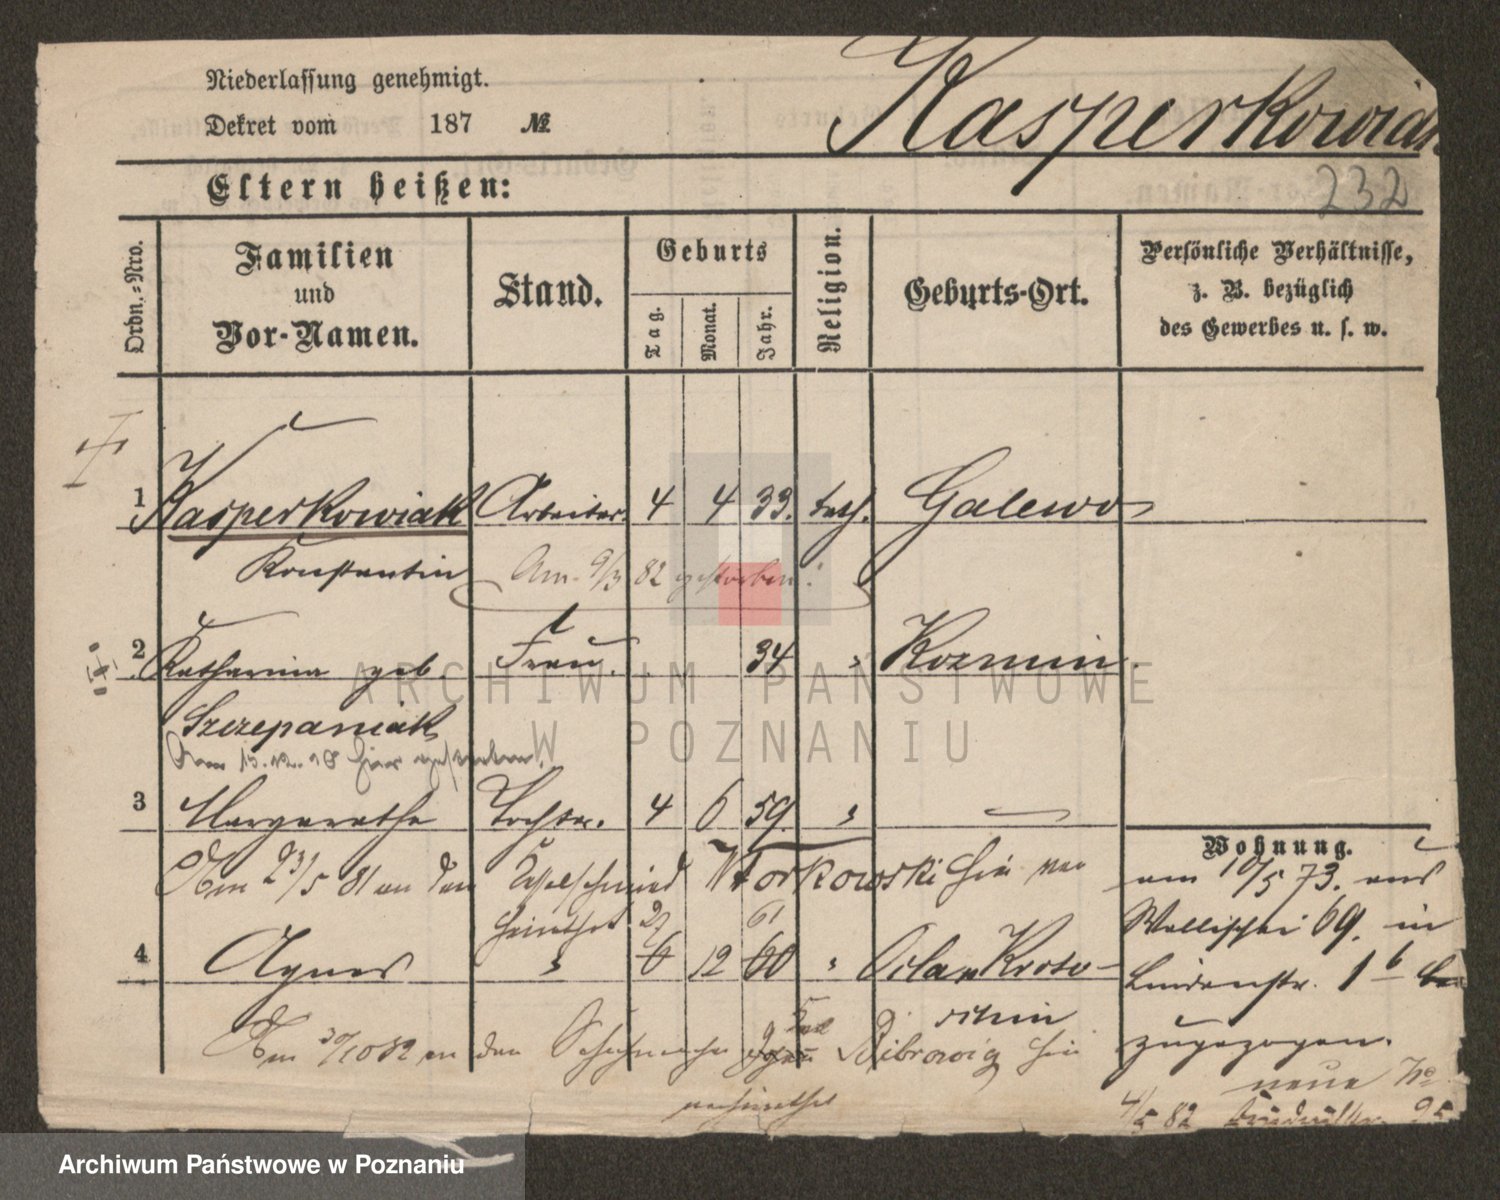 Niederlassung genehmigt.
Dekret vom 187 №
Kasperkowiak
232
Eltern heißen:
Ordn.-Nro.
Familien und Vor-Namen.
Stand.
Geburts
Tag.
Monat.
Jahr.
Religion.
Geburts-Ort.
Persönliche Verhältnisse,
z. B. bezüglich
des Gewerbes u. s. w.
1 Kasperkowiak Arbeiter 4 4 33. kath. Galewo
Konstantin Am 9/3 82 gestorben.
2 Katharina geb Frau. 34 " Kozmin
Szczepaniak
Am 15.12.98 hier gestorben.
3 Margarethe Tochter. 4 6 59. "
Wohnung.
Am 23/5 81 an den Kesselschmied Wtorkowski hier ver
heirathet 27 61
am 10/5 73. aus
Wallischei 69. in
4 Agnes " 6 12 60 "
Lindenstr. 1b
zugezogen.
Am 30/10 82 an den Schuhmacher Bibrowicz hier
verheirathet
neue No
4/5 82 95
ARCHIWUM PAŃSTWOWE
W POZNANIU
Archiwum Państwowe w Poznaniu